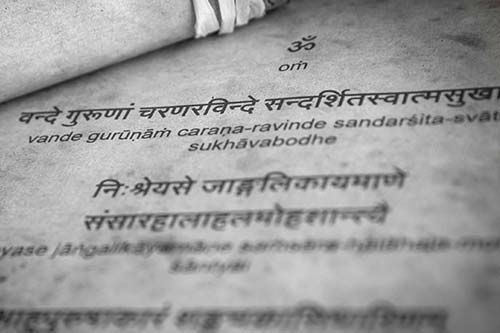 ॐ
oṁ
वन्दे गुरूणां चरणरविन्दे सन्दर्शितस्वात्मसुखा
vande gurūṇāṁ caraṇa-ravinde sandarśita-svāt
sukhāvabodhe
निःश्रेयसे जाङ्गलिकायमाणे
संसारहालाहलमोहशान्त्यै
yase jāṅgalikāyamāne saṁsāra
śāntyai